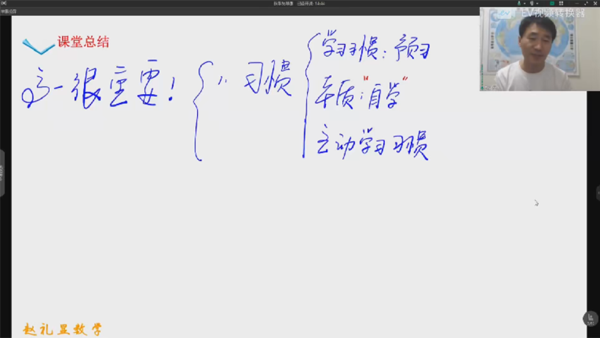 EV视频转换器
课堂总结
高一很重要!
1、习惯
学习习惯:预习
本质:"自学"
主动学习习惯
赵礼显数学